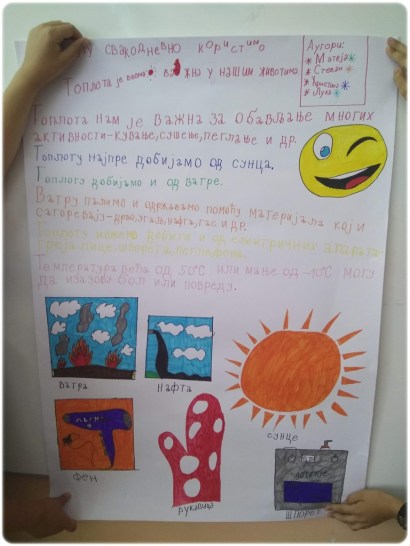 му свакодневно користимо
Топлота је важна у нашим животима
Аутори:
* Матеја *
* Стефан *
* Кристина *
* Лука *
Топлота нам је важна за обављање многих
активности-кување, сушење, пеглање и др.
Топлоту најпре добијамо од сунца.
Топлоту добијамо и од ватре.
Ватру палимо и одржавамо помоћу материјала који
сагоревају-дрво, угаљ, нафта, гас и др.
Топлоту можемо добити и од електричних апарата-
грејалице, шпорет, пегла, фен.
Температура већа од 50°C или мање од -10°C могу
да изазову бол или повреду.
ватра
нафта
сунце
фен
рукавица
шпорет